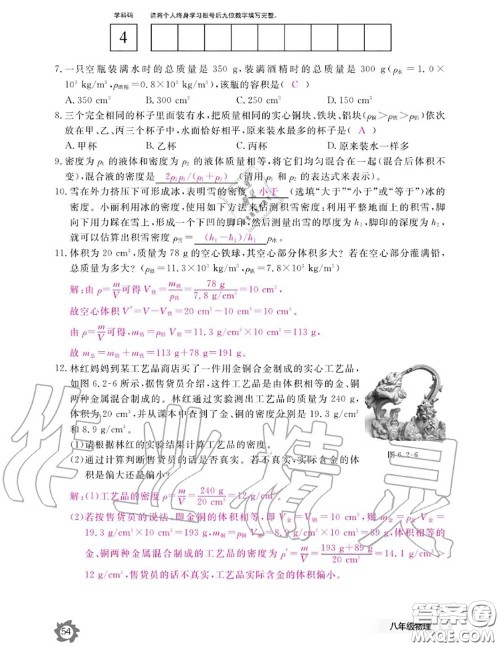 学科码 请将个人终身学习账号后九位数字填写完整。
4
7.一只空瓶装满水时的总质量是 350 g,装满酒精时的总质量是 300 g(ρ水=1.0×
10³ kg/m³,ρ酒精=0.8×10³ kg/m³),该瓶的容积是( C )
A.350 cm³ B.300 cm³ C.250 cm³ D.150 cm³
8.三个完全相同的杯子里面装有水,把质量相同的实心铜块、铁块、铝块(ρ铜>ρ铁>ρ铝)依次
放在甲、乙、丙三个杯子中,水面恰好相平,原来装水最多的杯子是( A )
A.甲杯 B.乙杯 C.丙杯 D.原来装水一样多
9.密度为 ρ₁ 的液体和密度为 ρ₂ 的液体质量相等,将它们均匀混合在一起(混合后体积不
变),混合液的密度是 2ρ₁ρ₂/(ρ₁+ρ₂) (请用 ρ₁ 和 ρ₂ 的表达式来表示)。
10.雪在外力挤压下可形成冰,表明雪的密度 小于 (选填“大于”“小于”或“等于”)冰的
密度。小丽利用冰的密度,使用如下方法来估测积雪密度:利用平整地面上的积雪,脚
向下用力踩在雪上,形成一个下凹的脚印,然后测量出雪的厚度为 h₁,脚印的深度为 h₂,
就可以估算出积雪密度 ρ雪= (h₁-h₂)/h₁ρ冰 。
11.体积为 20 cm³,质量为 78 g 的空心铁球,其空心部分体积多大?若在空心部分灌满铅,
总质量为多大?(ρ铅=11.3×10³ kg/m³,ρ铁=7.8×10³ kg/m³)
解:由 ρ=m/V可得 V铁=m铁/ρ铁=78 g/7.8 g/cm³=10 cm³,
故空心体积 V'=V-V铁=20 cm³-10 cm³=10 cm³。
由 ρ=m/V可得,m铅=ρ铅V铅=11.3 g/cm³×10 cm³=113 g,
故 m总=m铅+m铁=113 g+78 g=191 g。
12.林红妈妈到某工艺品商店买了一件用金铜合金制成的实心工艺品,
如图 6.2-6 所示,据售货员介绍,这件工艺品是由体积相等的金、铜
两种金属混合制成的工艺品。林红通过实验测出工艺品的质量为 240 g,
体积为 20 cm³,并从课本中查到了金、铜的密度分别是 19.3 g/cm³
和 8.9 g/cm³。
(1)请根据林红的实验结果计算工艺品的密度。
(2)通过计算判断售货员的话是否真实。若不真实,实际含金的体
积是偏大还是偏小?
图 6.2-6
解:(1)工艺品的密度 ρ=m/V=240 g/20 cm³=12 g/cm³。
(2)若按售货员的说法,即金铜的体积相等,即 V金=V铜=10 cm³,则 m金=ρ金V金=
19.3 g/cm³×10 cm³=193 g,m铜=ρ铜V铜=8.9 g/cm³×10 cm³=89 g,体积相等的
金、铜两种金属混合制成的工艺品的密度为 ρ'=m'/V=193 g+89 g/20 cm³=14.1 g/cm³>
12 g/cm³,售货员的话不真实,工艺品实际含金的体积偏小。
作业精灵
54
八年级物理
答案圈
MXQE.COM